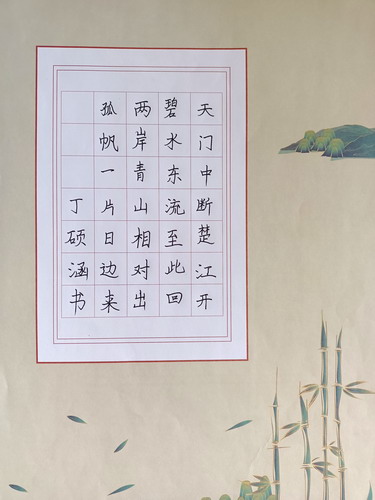 天门中断楚江开
碧水东流至此回
两岸青山相对出
孤帆一片日边来
丁硕涵书